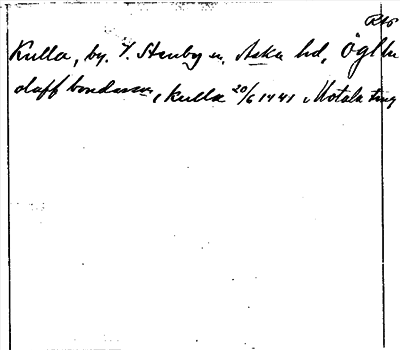 Kulla, by. V. Stenby sn, Aska hd, Ögl
olaff bondasson, i kulla 20/6 1441 Motala ting